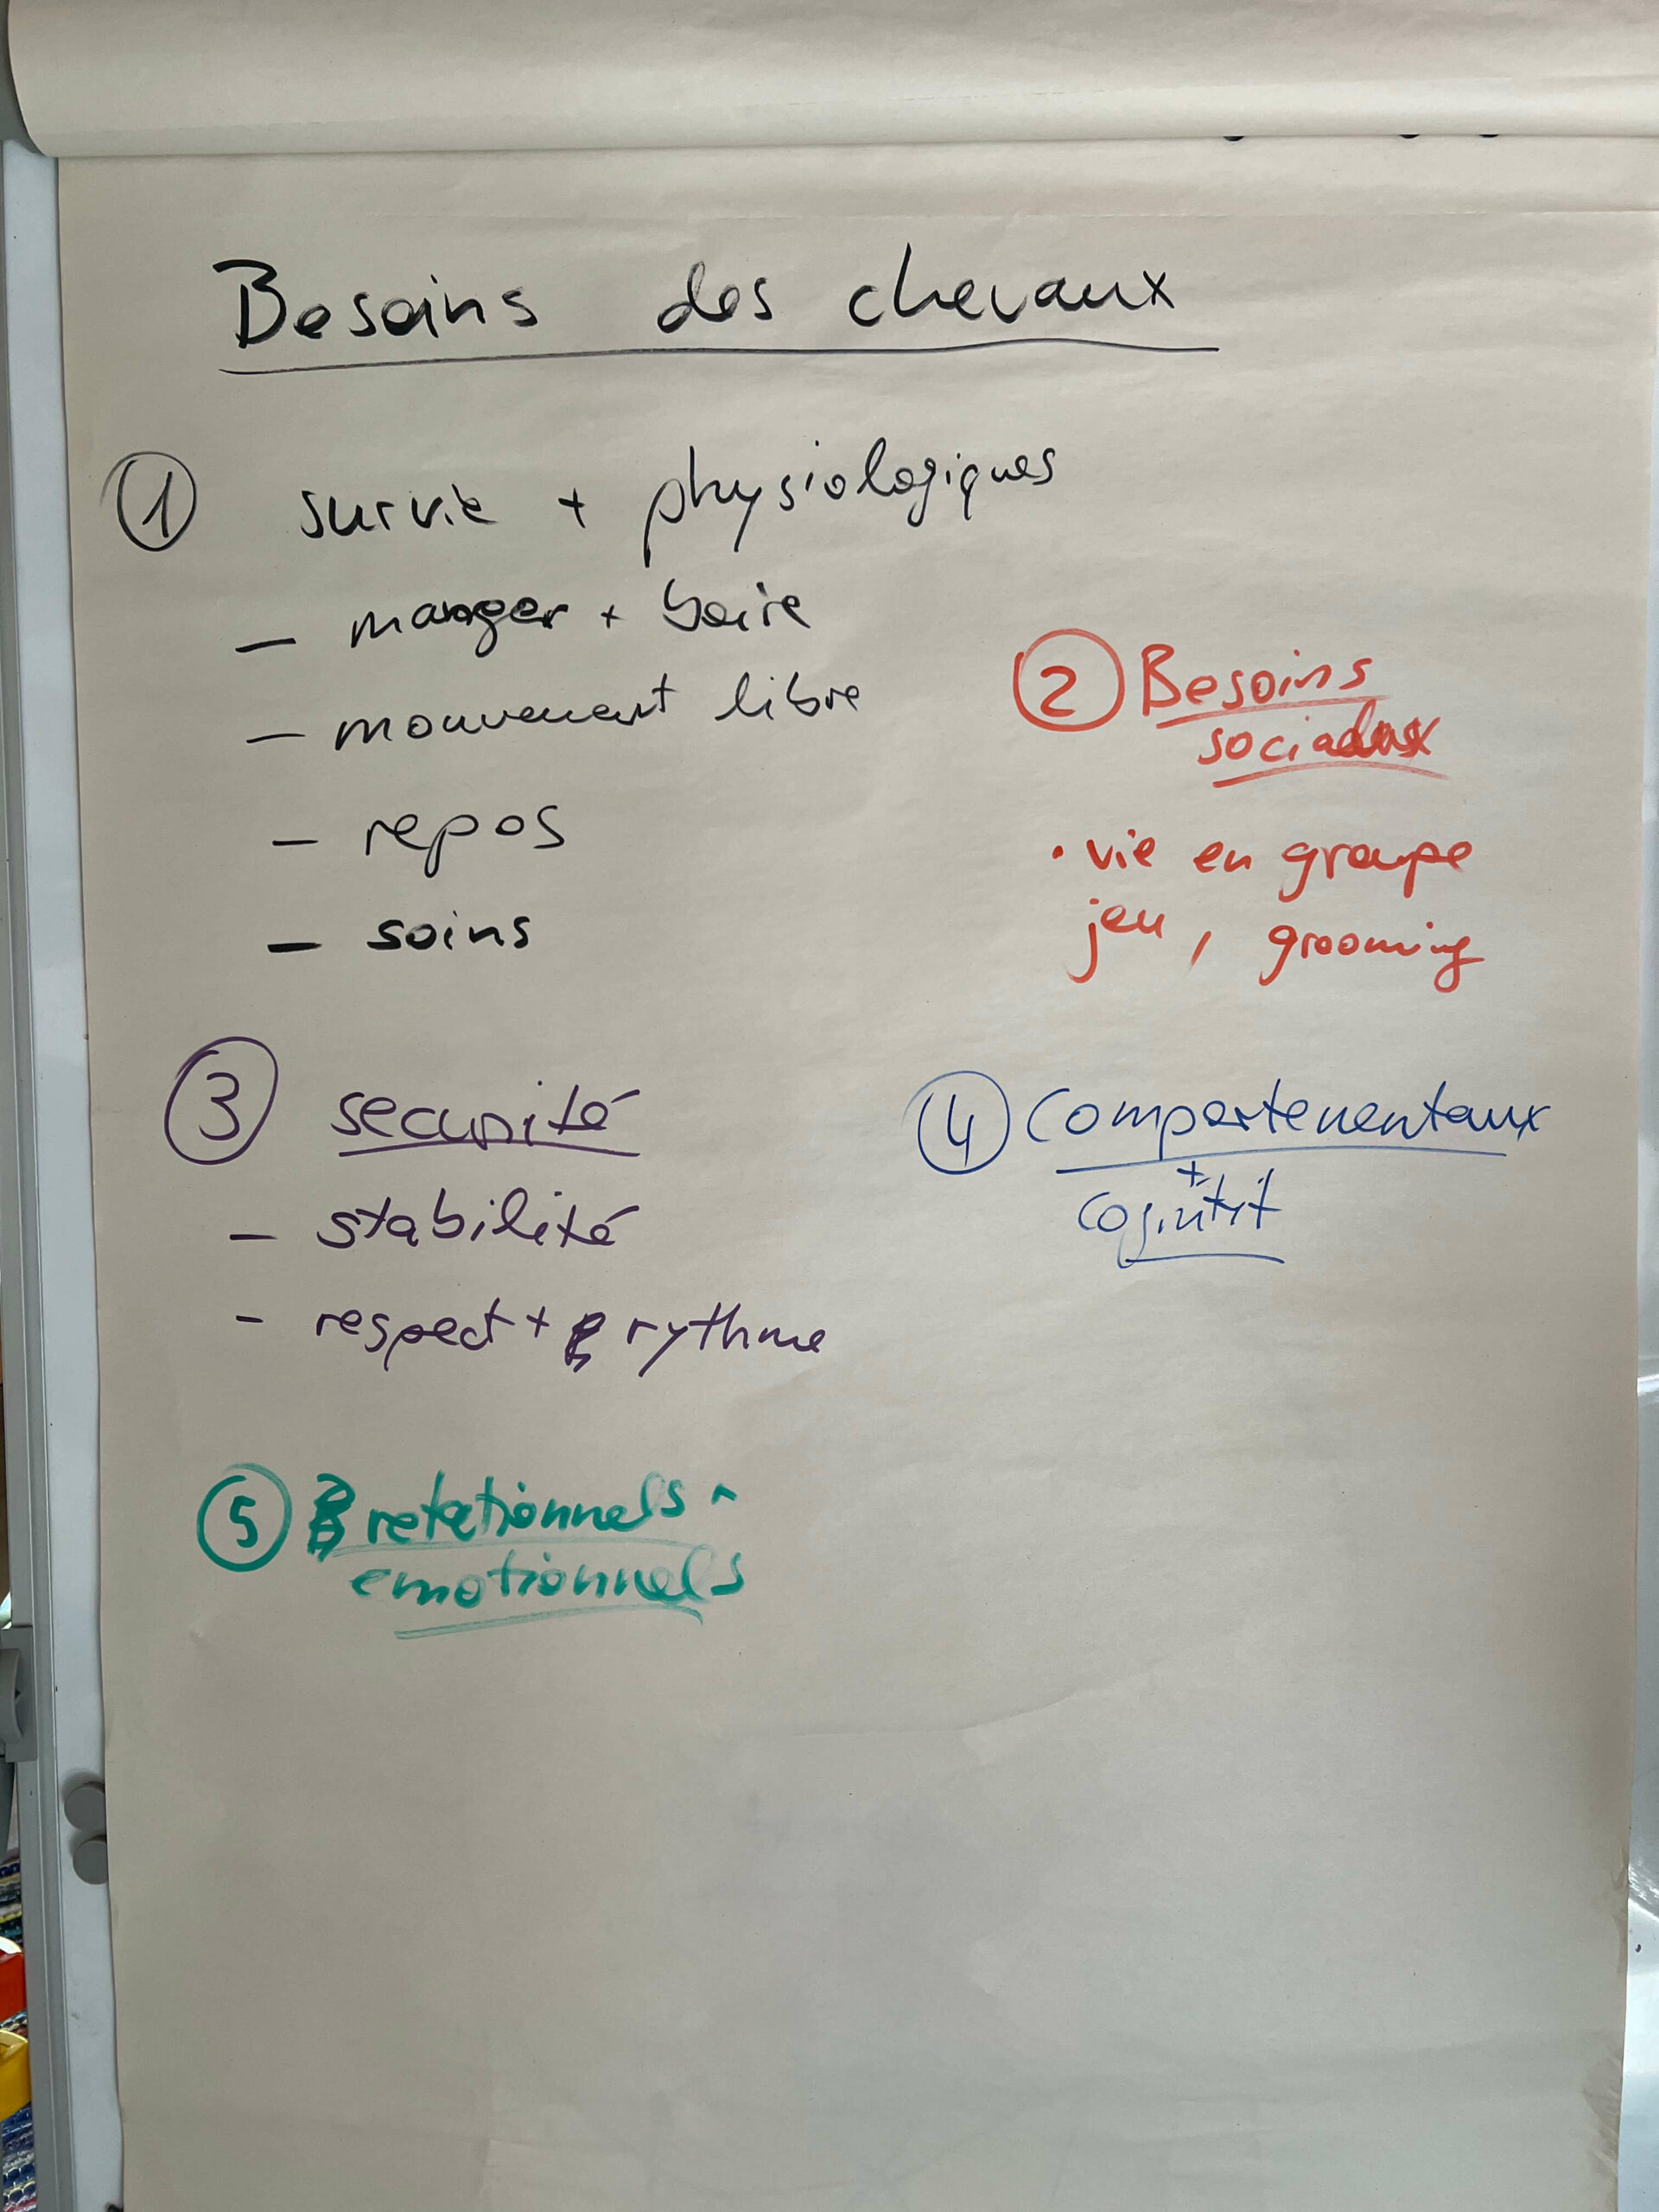 Besoins des chevaux
1 survie + physiologiques
- manger + boire
- mouvement libre
- repos
- soins
2 Besoins
sociaux
• vie en groupe
jeu, grooming
3 securité
- stabilité
- respect + rythme
4 Comportementaux
+
cognitif
5 relationnels
emotionnels